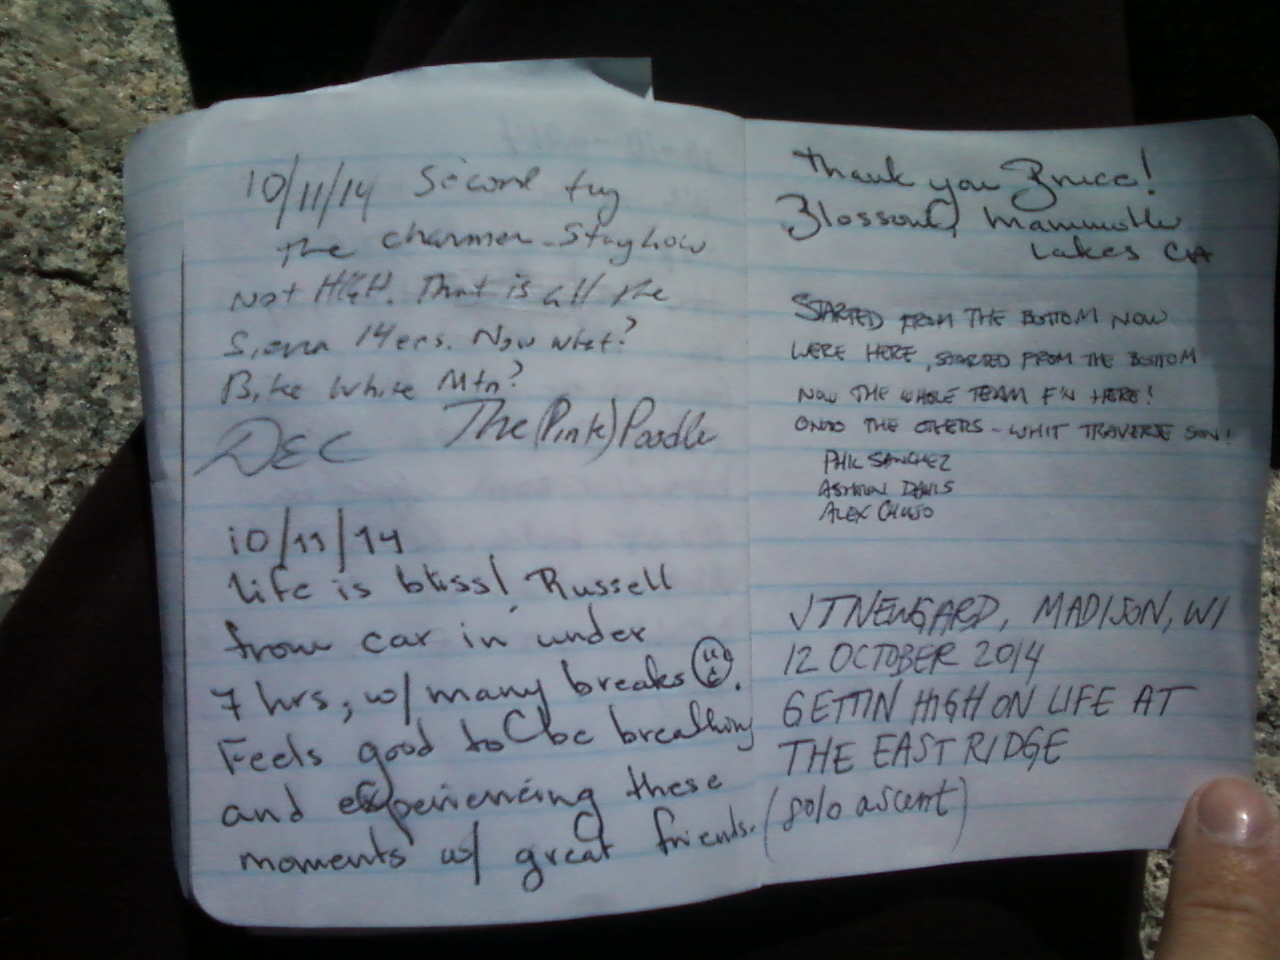 10/11/14 Second try
the charmer. Stay low
not HIGH. That is all the
Sierra 14ers. Now what?
Bike White Mtn?
DEC The (Pink) Poodle
10/11/14
Life is bliss! Russell
from car in under
7 hrs, w/ many breaks
Feels good to be breathing
and experiencing these
moments w/ great friends.
Thank you Bruce!
Blossom, Mammoth
Lakes CA
STARTED FROM THE BOTTOM NOW
WERE HERE, STARTED FROM THE BOTTOM
NOW THE WHOLE TEAM F'N HERE!
ONTO THE OTHERS - WHIT TRAVERSE SON!
PHIL SANCHEZ
ASHTON DAVIS
ALEX
JT NEWGARD, MADISON, WI
12 OCTOBER 2014
GETTIN HIGH ON LIFE AT
THE EAST RIDGE
(solo ascent)